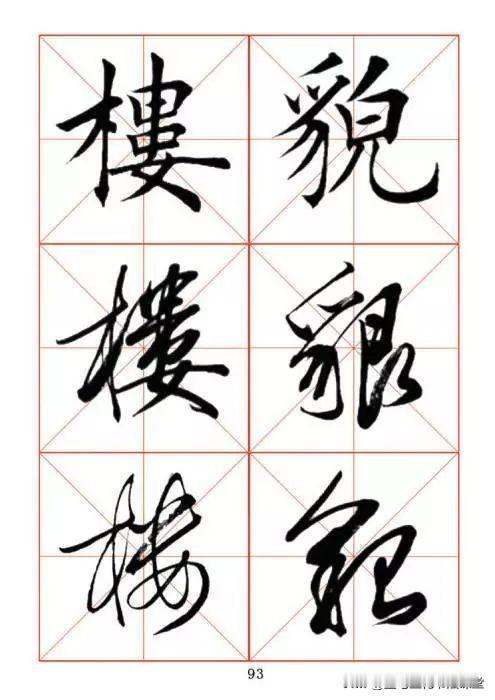 樓 貌
樓 貌
樓 貌
93